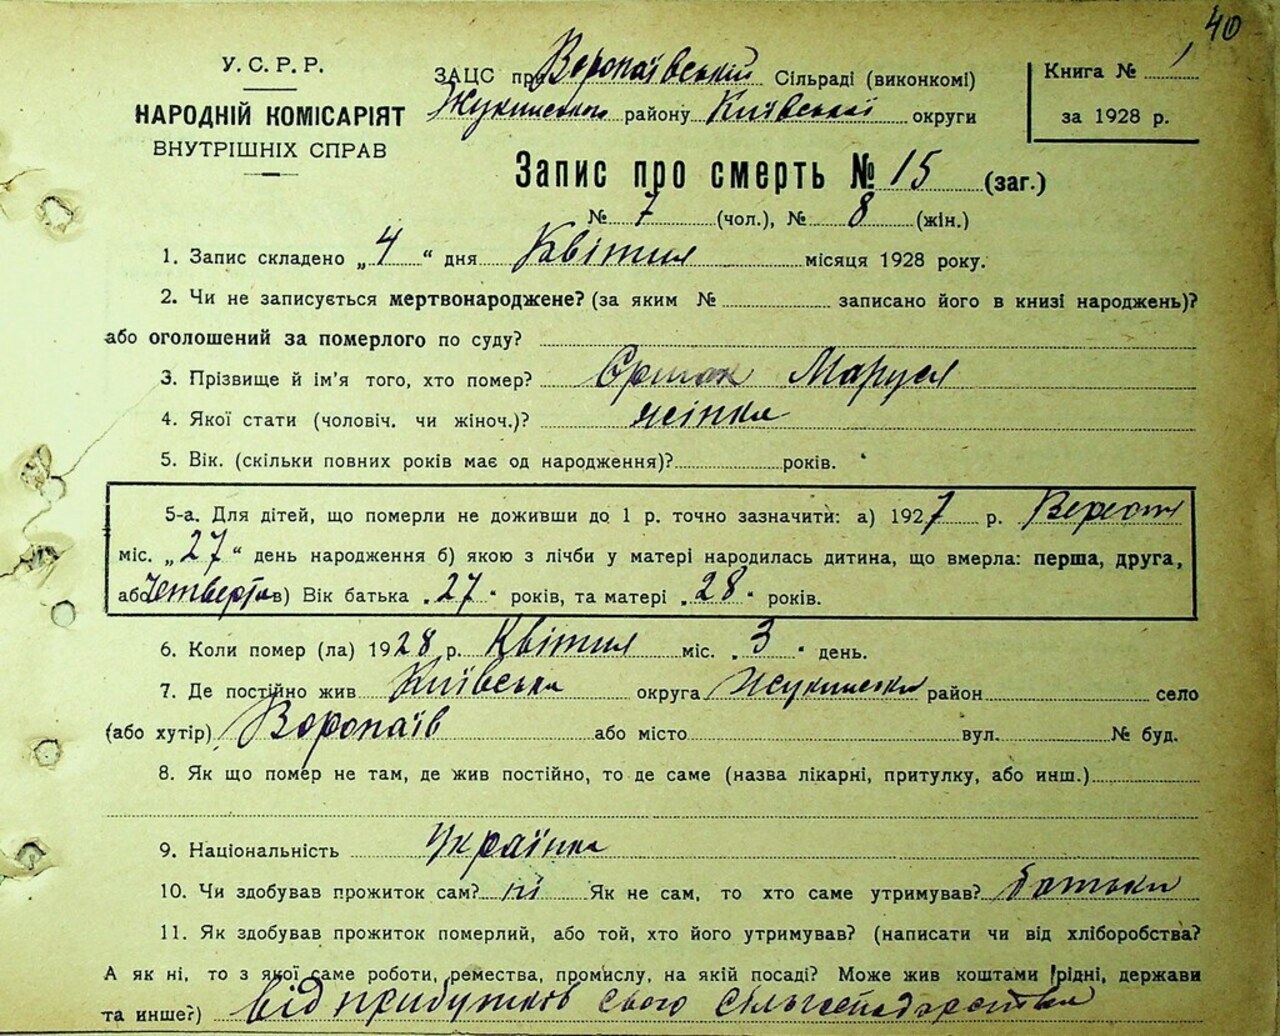 40
У.С.Р.Р.
НАРОДНІЙ КОМІСАРІЯТ
ВНУТРІШНІХ СПРАВ
ЗАЦС при Воропаївській Сільраді (виконкомі)
Жукинського району Київської округи
Книга № 1
за 1928 р.
Запис про смерть № 15 (заг.)
№ 7 (чол.), № 8 (жін.)
1. Запис складено „4“ дня Квітня місяця 1928 року.
2. Чи не записується мертвонароджене? (за яким № записано його в книзі народжень)?
або оголошений за померлого по суду?
3. Прізвище й ім'я того, хто помер? Маруся
4. Якої стати (чоловіч. чи жіноч.)? жінка
5. Вік. (скільки повних років має од народження)? років.
5-а. Для дітей, що померли не доживши до 1 р. точно зазначити: а) 1927 р. Вересня
міс. „27“ день народження б) якою з лічби у матері народилась дитина, що вмерла: перша, друга,
або Четверта в) Вік батька „27“ років, та матері „28“ років.
6. Коли помер (ла) 1928 р. Квітня міс. „3“ день.
7. Де постійно жив Київська округа Жукинськи район село
(або хутір) Воропаїв або місто вул. № буд.
8. Як що помер не там, де жив постійно, то де саме (назва лікарні, притулку, або инш.)
9. Національність Українка
10. Чи здобував прожиток сам? ні Як не сам, то хто саме утримував? батьки
11. Як здобував прожиток померлий, або той, хто його утримував? (написати чи від хліборобства?
А як ні, то з якої саме роботи, ремества, промислу, на якій посаді? Може жив коштами рідні, держави
та инше?) від прибутков свого сільгосподарства